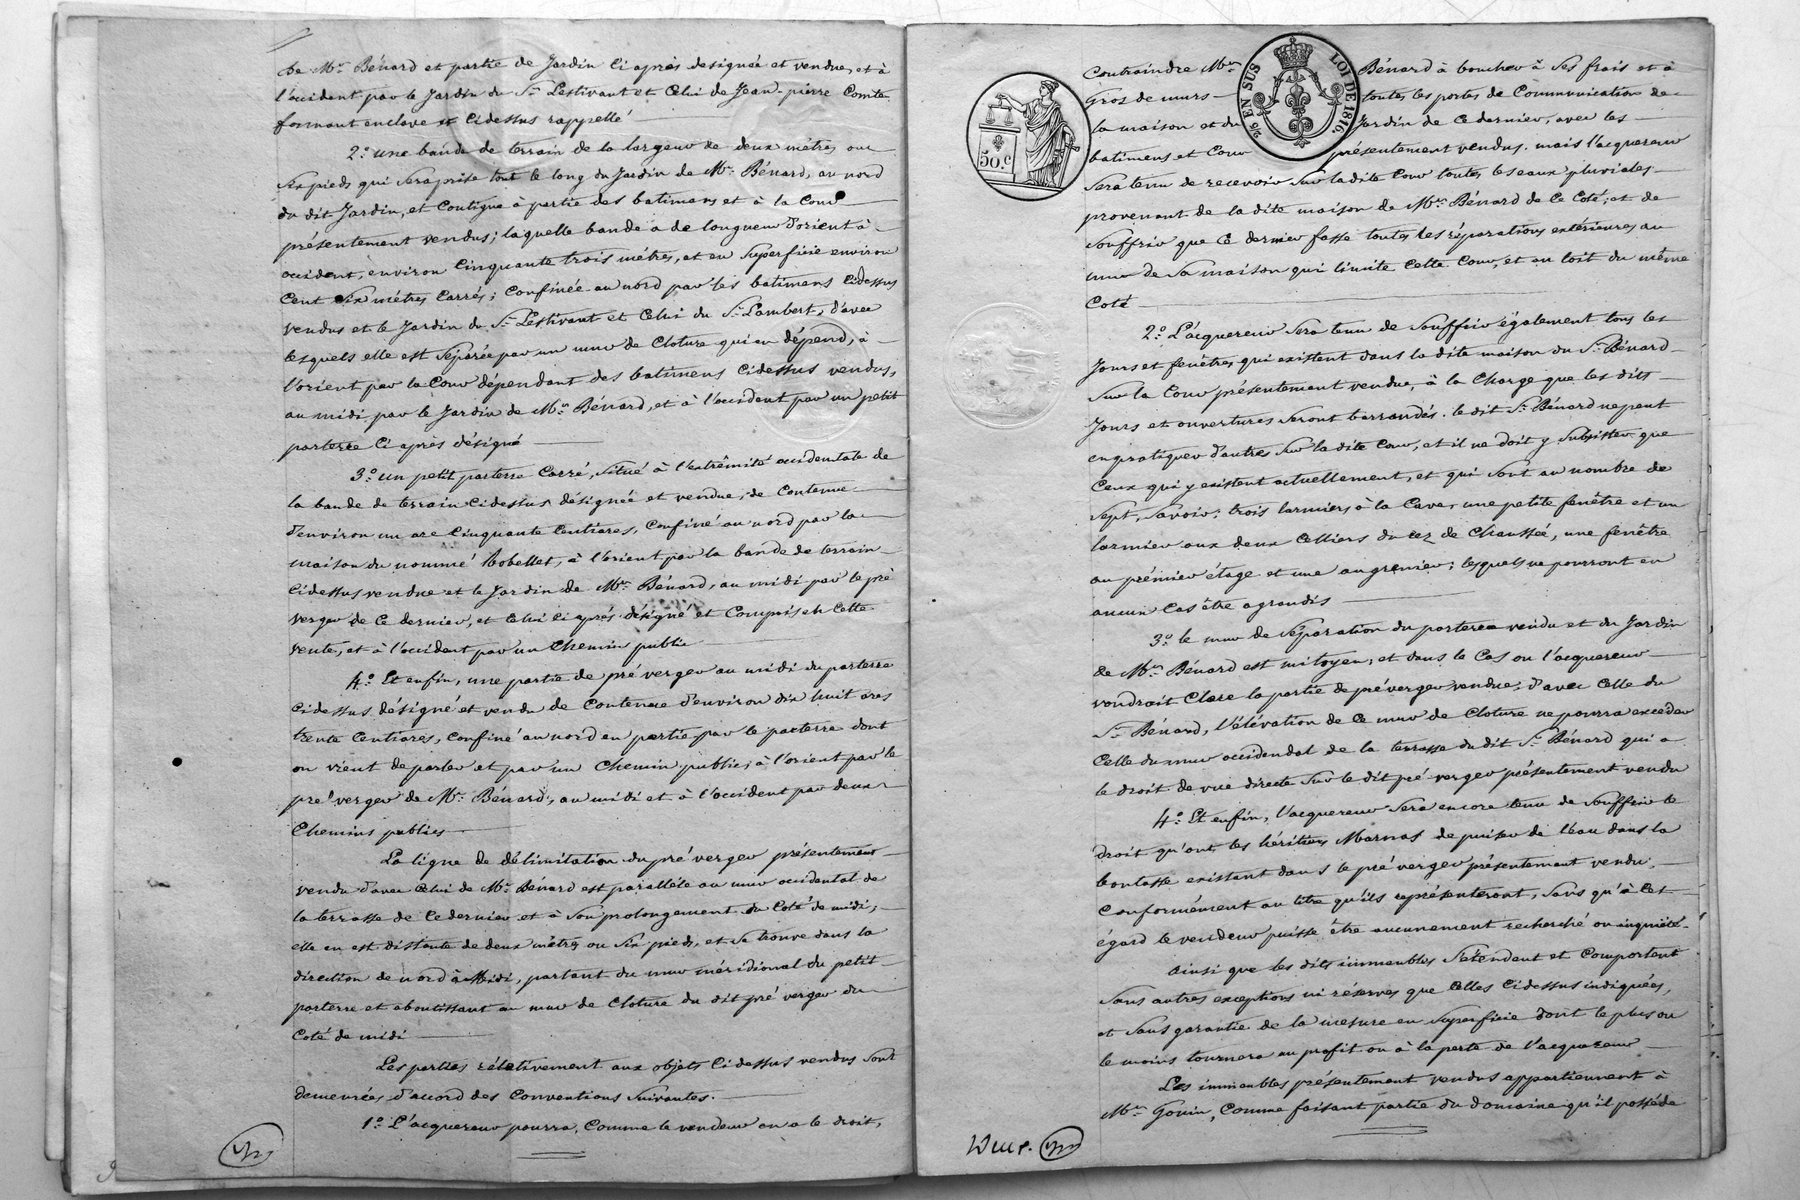 de Mr. Bénard et partie de Jardin Ci après designée et vendue, et à
l'occident par le Jardin du Sr. Lestivant et Celui de Jean-pierre Comte
formant enclave et Cidessus rappellé
2.o une bande de terrain de la largeur de deux métres ou
Six pieds qui Sera prise tout le long du Jardin de Mr. Bénard, au nord
du dit Jardin, et Contigue à partie des batimens et à la Cour
présentement vendus; laquelle bande a de longueur d'orient à
occident, environ Cinquante trois métres, et en Superficie environ
Cent Six métres Carrés; Confinée au nord par les batimens Cidessus
vendus et le Jardin du Sr. Lestivant et Celui du Sr. Lambert, d'avec
lesquels elle est Séparée par un mur de Cloture qui en dépend, à
l'orient par la Cour dépendant des batimens Cidessus vendus,
au midi par le Jardin de Mr. Bénard, et à l'occident par un petit
parterre Ci après désigné
3.o un petit parterre Carré, Situé à l'extrêmité occidentale de
la bande de terrain Cidessus désignée et vendue, de Contenue
d'environ un are Cinquante Centiares, Confiné au nord par la
maison du nommé Bobellet, à l'orient par la bande de terrain
Cidessus vendue et le Jardin de Mr. Bénard, au midi par le pré
verger de Ce dernier, et Celui Ci après désigné et Compris en Cette
vente, et à l'occident par un Chemin public
4.o Et enfin, une partie de pré verger au midi du parterre
Cidessus désigné et vendu de Contenue d'environ dix huit ares
trente Centiares, Confiné au nord en partie par le parterre dont
on vient de parler et par un Chemin public, à l'orient par le
pré verger de Mr. Bénard, au midi et à l'occident par deux
Chemins publics
La ligne de délimitation du pré verger présentement
vendu d'avec Celui de Mr. Bénard est parallèle au mur occidental de
la terrasse de Ce dernier et à Son prolongement du Coté de midi,
elle en est distante de deux métres ou Six pieds, et Se trouve dans la
direction de nord à Midi, partant du mur méridional du petit
parterre et aboutissant au mur de Cloture du dit pré verger du
Coté de midi
Les parties rélativement aux objets Cidessus vendus Sont
demeurées d'accord des Conventions Suivantes.
1.o L'acquereur pourra, Comme le vendeur en a le droit,
Contraindre Mr. Bénard à boucher à Ses frais et à
Gros de murs toutes les portes de Communication de
la maison et du Jardin de Ce dernier, avec les
batimens et Cour présentement vendus. mais l'acquereur
Sera tenu de recevoir Sur ladite Cour toutes les eaux pluviales
provenant de la dite maison de Mr. Bénard de Ce Coté; et de
Souffrir que Ce dernier fasse toutes les réparations extérieures au
mur de Sa maison qui limite Cette Cour, et au toit du même
Coté
2.o L'acquereur Sera tenu de Souffrir également tous les
Jours et fenêtres qui existent dans la dite maison du Sr. Bénard
Sur la Cour présentement vendue, à la Charge que les dits
Jours et ouvertures Seront barraudés. le dit Sr. Bénard ne peut
en pratiquer d'autres Sur la dite Cour, et il ne doit y Subsister que
Ceux qui y existent actuellement, et qui Sont au nombre de
Sept, Savoir: trois larmiers à la Cave, une petite fenêtre et un
larmier aux deux Celliers du rez de Chaussée, une fenêtre
au prémier étage et une au grenier; lesquels ne pourront en
aucun Cas être agrandis
3.o le mur de Séparation du parterre vendu et du Jardin
de Mr. Bénard est mitoyen, et dans le Cas ou l'acquereur
voudrait Clore la partie de pré verger vendue, d'avec Celle du
Sr. Bénard, l'élévation de Ce mur de Cloture ne pourra excéder
Celle du mur occidental de la terrasse du dit Sr. Bénard qui a
le droit de vue directe Sur le dit pré verger présentement vendu
4.o Et enfin, l'acquereur Sera encore tenu de Souffrir le
droit qu'ont les héritiers Marnas de puiser de l'eau dans la
boutasse existant dans le pré verger présentement vendu,
Conformément au titre qu'ils représenteront, Sans qu'à Cet
égard le vendeur puisse être aucunement recherché ou inquiété.
Ainsi que les dits immeubles S'étendent et Comportent
Sans autres exceptions ni réserves que Celles Cidessus indiquées,
et Sans garantie de la mesure en Superficie dont le plus ou
le moins tournera au profit ou à la perte de l'acquereur
Les immeubles présentement vendus appartiennent à
Mr. Gonin, Comme faisant partie du domaine qu'il possède
50 c
2/5 EN SUS
LOI DE 1816.